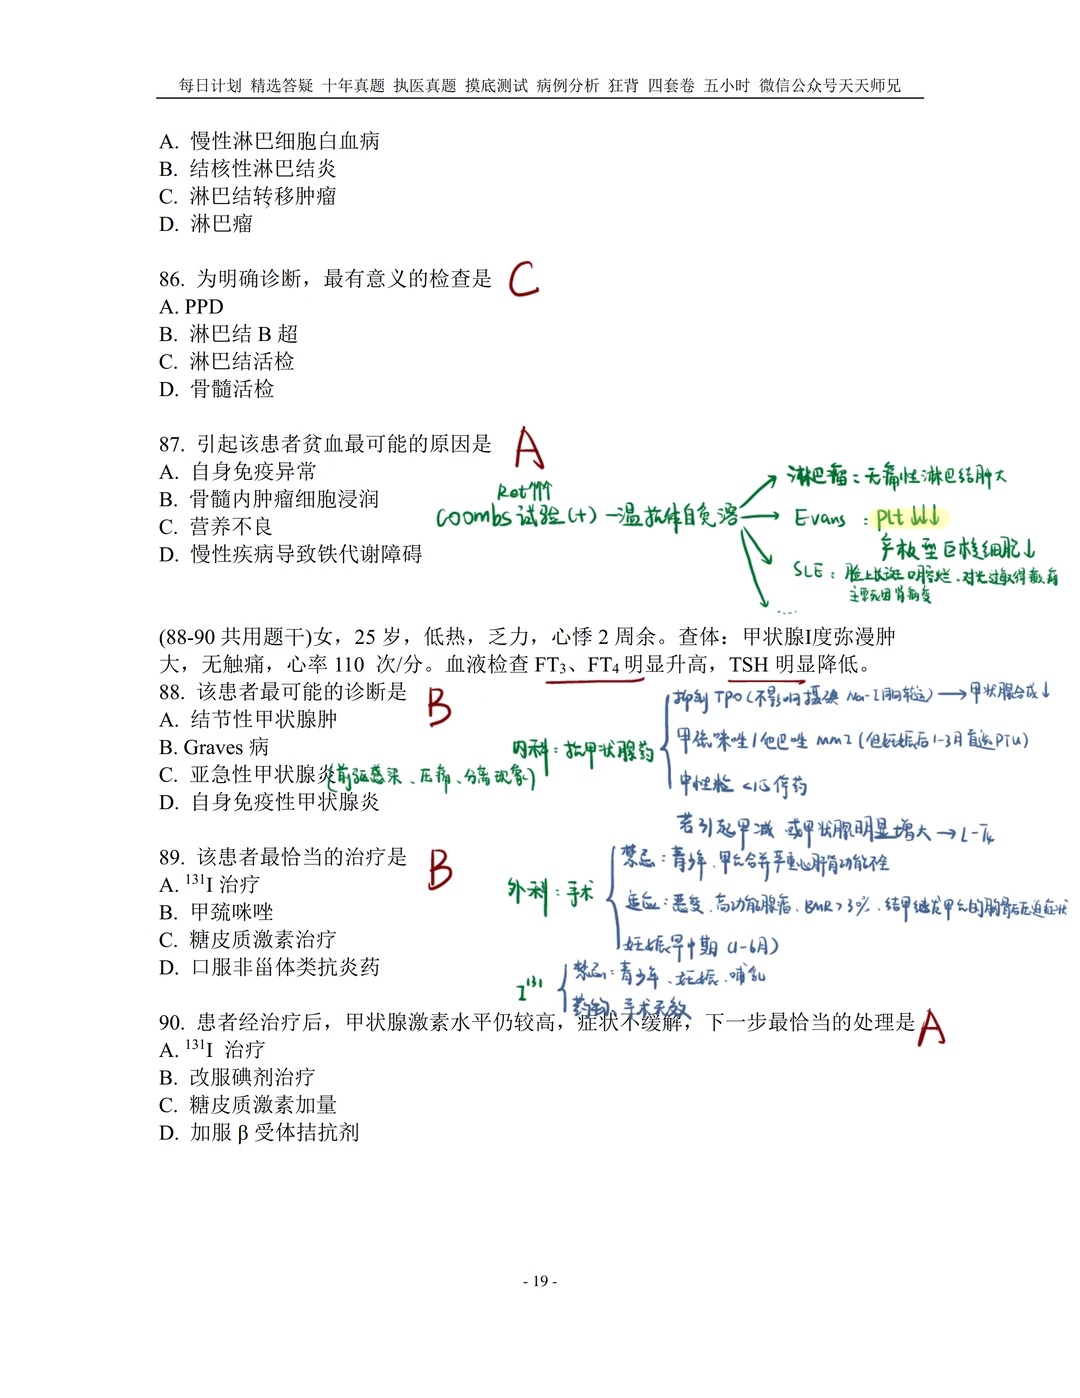 每日计划 精选答疑 十年真题 执医真题 摸底测试 病例分析 狂背 四套卷 五小时 微信公众号天天师兄
A. 慢性淋巴细胞白血病
B. 结核性淋巴结炎
C. 淋巴结转移肿瘤
D. 淋巴瘤
86. 为明确诊断，最有意义的检查是 C
A. PPD
B. 淋巴结 B 超
C. 淋巴结活检
D. 骨髓活检
87. 引起该患者贫血最可能的原因是 A
A. 自身免疫异常
B. 骨髓内肿瘤细胞浸润
C. 营养不良
D. 慢性疾病导致铁代谢障碍
Ret↑↑↑
Coombs试验(+)—温抗体自免溶
淋巴瘤：无痛性淋巴结肿大
Evans：Plt↓↓↓
产板型巨核细胞↓
SLE：脸上长斑 口腔烂、对光过敏得截瘫
主要死因肾病变
....
(88-90 共用题干)女，25 岁，低热，乏力，心悸 2 周余。查体：甲状腺Ⅰ度弥漫肿
大，无触痛，心率 110 次/分。血液检查 FT₃、FT₄ 明显升高，TSH 明显降低。
88. 该患者最可能的诊断是 B
A. 结节性甲状腺肿
B. Graves 病
C. 亚急性甲状腺炎(前驱感染、压痛、分离现象)
D. 自身免疫性甲状腺炎
内科：抗甲状腺药
抑制TPO(不影响摄碘 Na-I同向转运)→甲状腺合成↓
甲巯咪唑/他巴唑 MMI (但妊娠后1-3月首选PTU)
中性粒<1.5停药
若引起甲减 或甲状腺明显增大→L-T4
89. 该患者最恰当的治疗是 B
A. ¹³¹I 治疗
B. 甲巯咪唑
C. 糖皮质激素治疗
D. 口服非甾体类抗炎药
外科：手术
禁忌：青少年、甲亢合并严重心肝肾功能不全
适应：恶变、高功能腺瘤、BMR>3%、结甲继发甲亢的胸骨后压迫症状
妊娠早中期 (1-6月)
I¹³¹
禁忌：青少年、妊娠、哺乳
药物、手术无效
90. 患者经治疗后，甲状腺激素水平仍较高，症状不缓解，下一步最恰当的处理是 A
A. ¹³¹I 治疗
B. 改服碘剂治疗
C. 糖皮质激素加量
D. 加服 β 受体拮抗剂
- 19 -